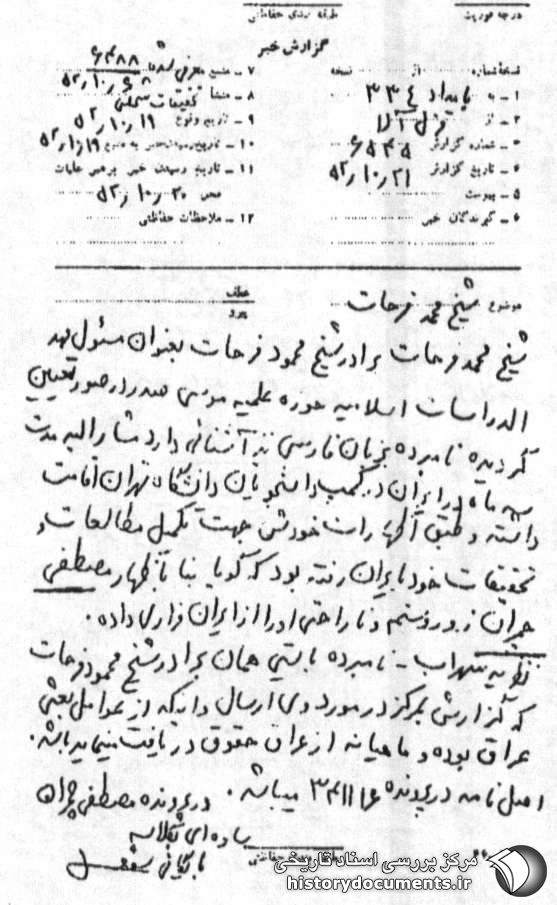 درجه فوریت
طبقه بندی حفاظتی
گزارش خبر
نسخه شماره از نسخه
۱ - به بامداد ۳۳۴
۲ - از
۳ - شماره گزارش ۶۵۴۵
۴ - تاریخ گزارش ۵۲٫۱۰٫۲۱
۵ - پیوست
۶ - گیرندگان خبر
۷ - منبع معرفی شده ۶۴۸۸
۸ - منشا تحقیقات
۹ - تاریخ وقوع ۵۲٫۱۰٫۱۹
۱۰ - تاریخ رسیدن خبر به منبع ۵۲٫۱۰٫۱۹
۱۱ - تاریخ رسیدن خبر برهبر عملیات
۵۲٫۱۰٫۲۰
۱۲ - ملاحظات حفاظتی
موضوع شیخ محمد فرحات
عطف
پیرو
شیخ محمد فرحات برادر شیخ محمود فرحات بعنوان مسئول معهد
الدراسات اسلامیه حوزه علمیه موسی صدر در صور تعیین
گردیده نامبرده بزبان فارسی نیز آشنائی دارد مشارالیه مدت
سه ماه در ایران در کمپ دانشجویان دانشگاه تهران اقامت
داشته و طبق اظهارات خودش جهت تکمیل مطالعات و
تحقیقات خود بایران رفته بود که گویا بنا باظهار مصطفی
چمران ترور رستم و ناراحتی او را از ایران فراری داده.
نظریه سهراب - نامبرده بایستی همان برادر شیخ محمود فرحات
که گزارشی بمرکز در مورد وی ارسال دادیکه از عوامل بعثی
عراق بوده و ماهیانه از عراق حقوق دریافت مینماید باشد.
اصل نامه در پرونده ۳۴۱۱۶ میباشد. در پرونده مصطفی چمران
ساده‌ای کلاسه
بایگانی شود
مرکز بررسی اسناد تاریخی
historydocuments.ir